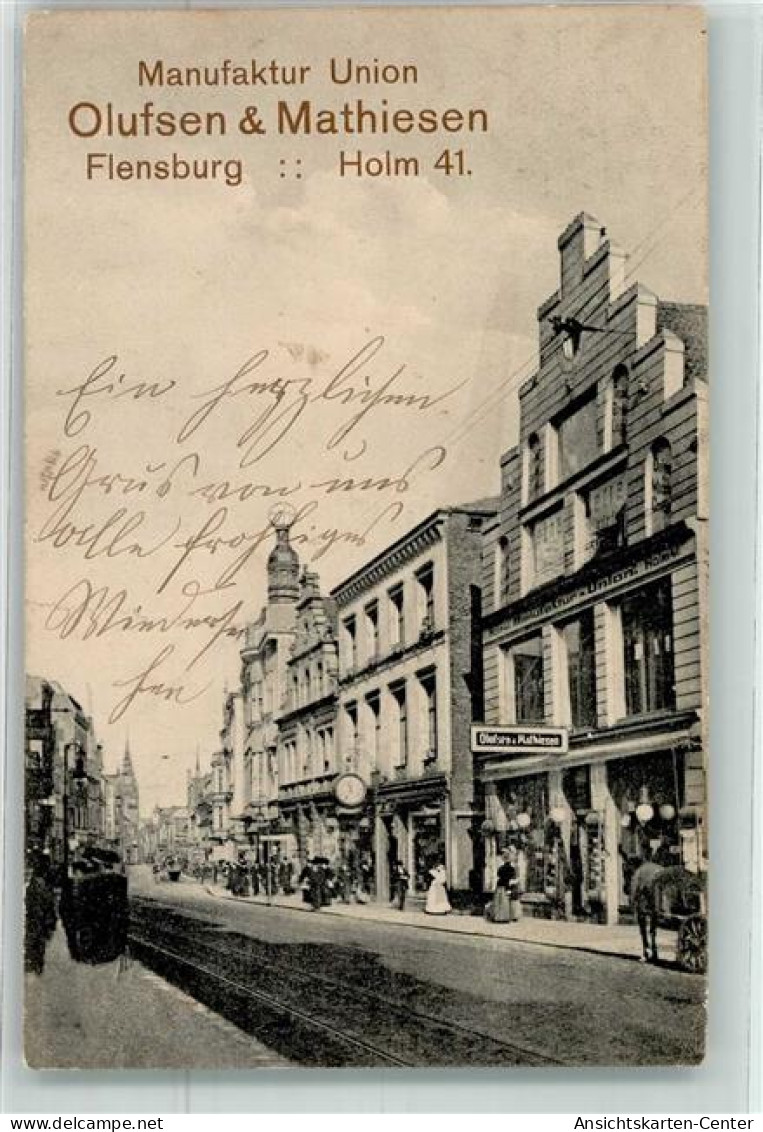 Manufaktur Union
Olufsen & Mathiesen
Flensburg :: Holm 41.
Ein herzlichen
Grus von uns
alle frohliges
Wiederse
hen
Manufactur-Union.
Olufsen & Mathiesen
www.delcampe.net
Ansichtskarten-Center